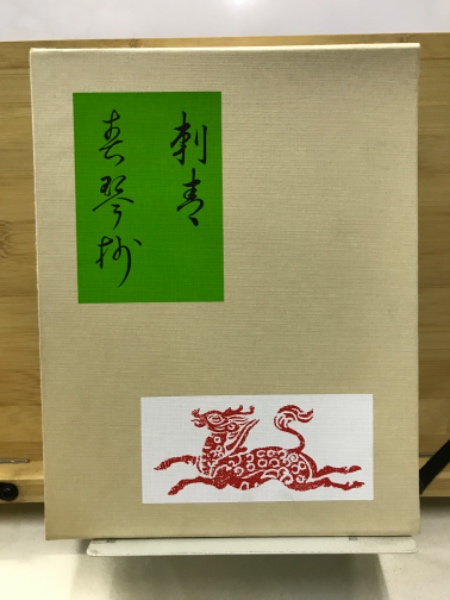 刺青
春琴抄